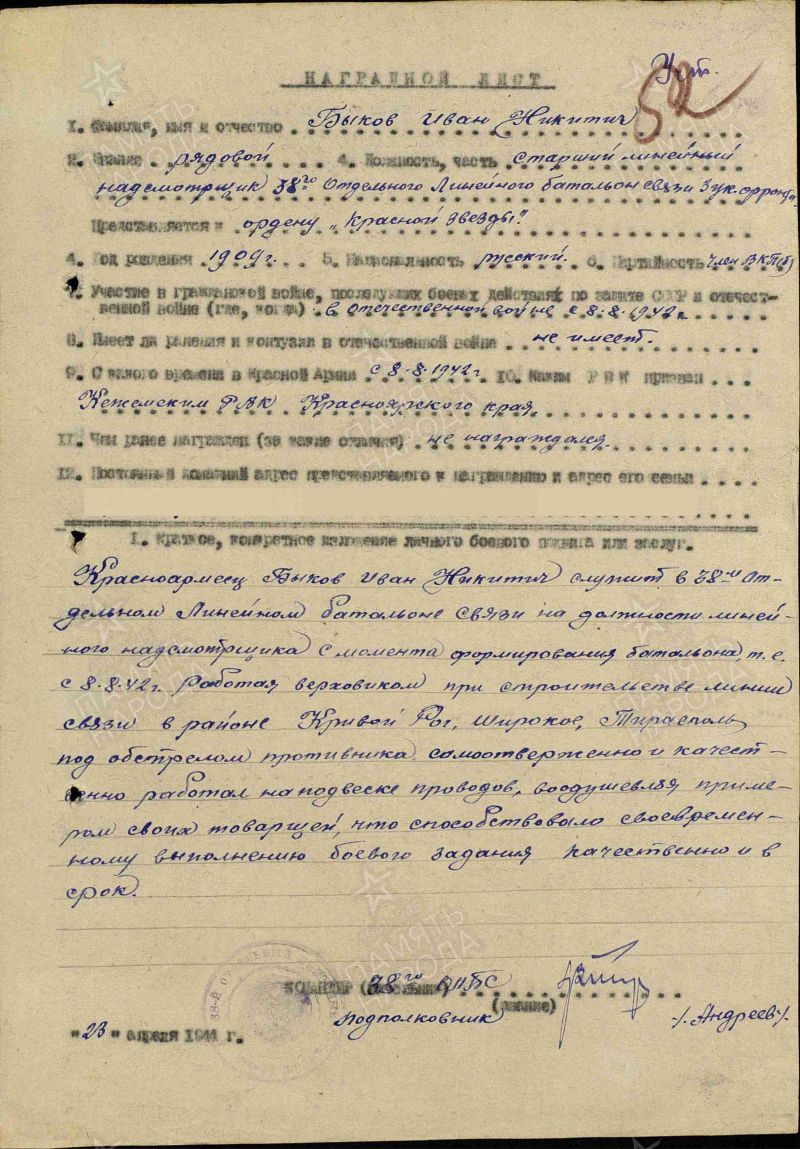 Утв.
52
НАГРАДНОЙ ЛИСТ
1. Фамилия, имя и отчество Быков Иван Никитич
2. Звание рядовой 4. Должность, часть Старший линейный
надсмотрщик 38го Отдельного Линейного батальон связи 3 ук. фронта.
Представляется к ордену „Красной звезды"
4. Год рождения 1909 г. 5. Национальность русский. 6. Партийность член ВКП(б)
7. Участие в гражданской войне, последующих боевых действиях по защите СССР и отечест-
венной войне (где, когда) в отечественной войне с 8.8.1942 г.
8. Имеет ли ранения и контузии в отечественной войне не имеет.
9. С какого времени в Красной Армии с 8.8.1942 г. 10. Каким РВК призван
Кежемским РВК Красноярского края
11. Чем ранее награжден (за какие отличия) не награждался.
12. Постоянный домашний адрес представляемого к награждению и адрес его семьи
I. Краткое, конкретное изложение личного боевого подвига или заслуг.
Красноармеец Быков Иван Никитич служит в 38-м От-
дельном Линейном батальоне связи на должности линей-
ного надсмотрщика с момента формирования батальона, т.е.
с 8.8.42 г. Работая верховиком при строительстве линии
связи в районе Кривой Рог, Широкое, Тирасполь
под обстрелом противника самоотверженно и качест-
венно работал на подвеске проводов, воодушевляя приме-
ром своих товарщей, что способствовало своевремен-
ному выполнению боевого задания качественно и в
срок.
КОМАНДИР 38го ОЛБС
(звание)
подполковник /Андреев/.
"23" апреля 1944 г.
ПАМЯТЬ НАРОДА